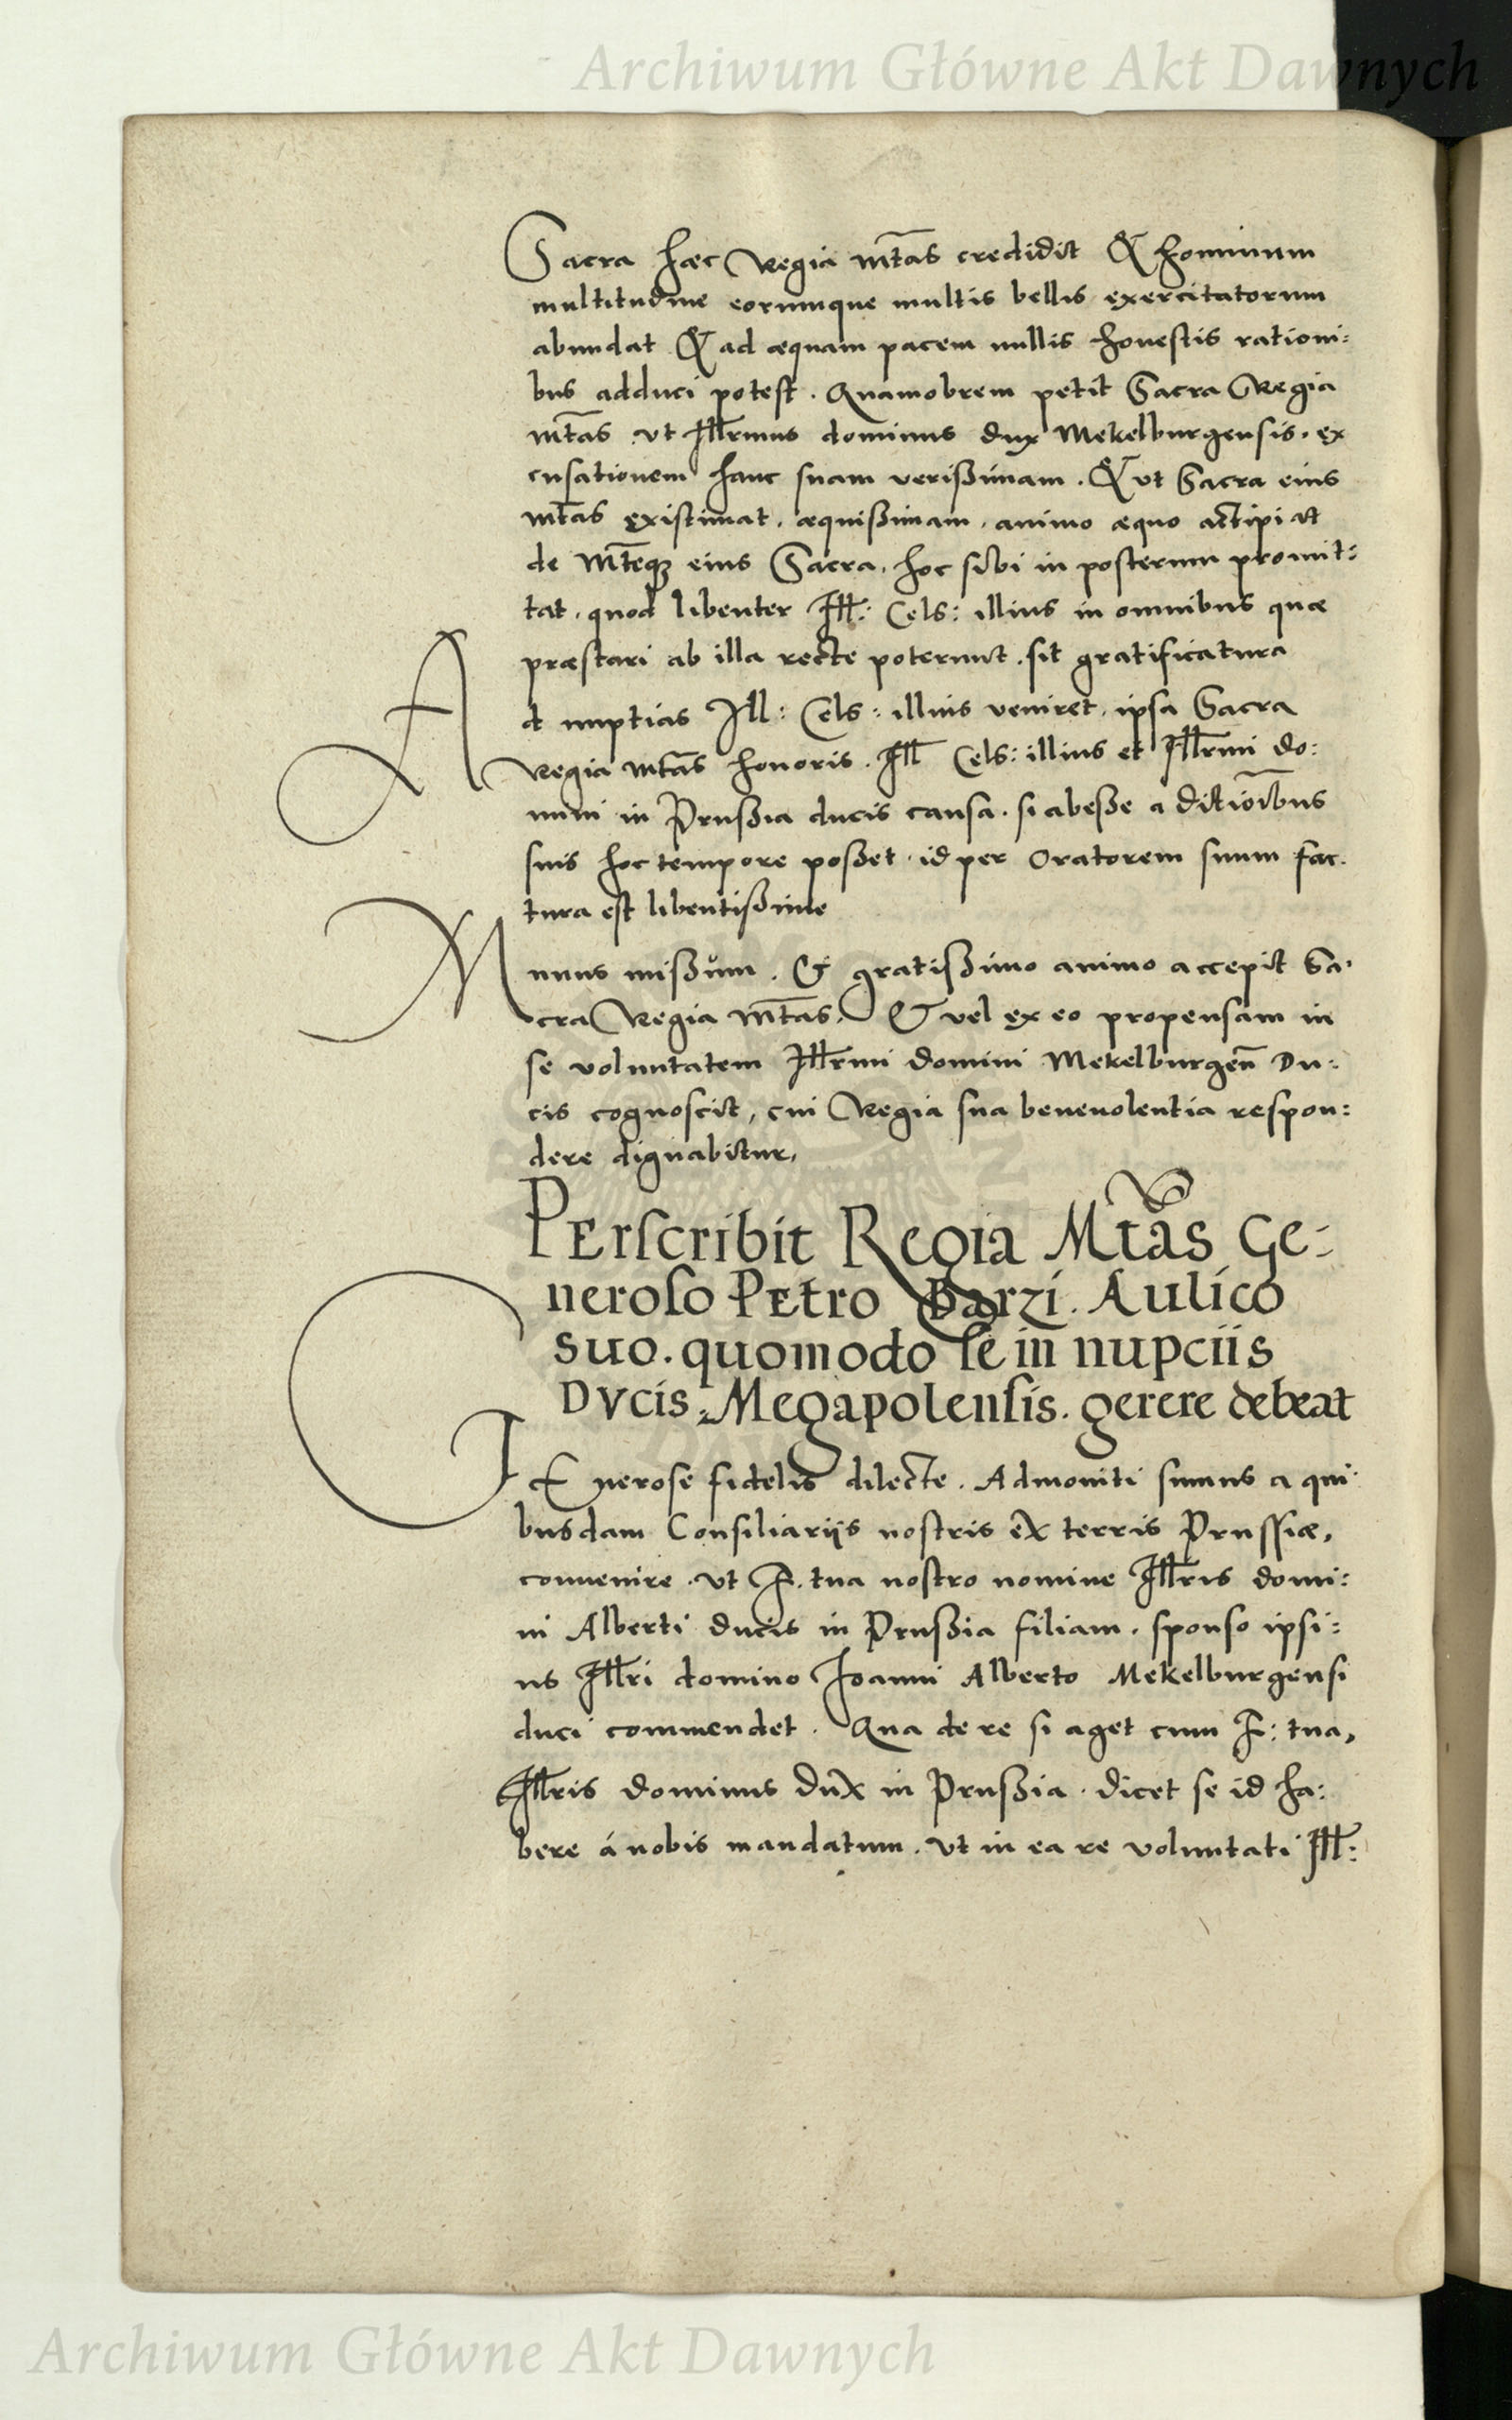 Archiwum Główne Akt Dawnych
Sacra hæc Regia Mtas credidit & hominum
multitudine eorumque multis bellis exercitatorum
abundat & ad æquam pacem nullis honestis rationi:
bus adduci potest. Quamobrem petit Sacra Regia
Mtas ut Illrmus dominus dux Mekelburgensis. ex
cusationem hanc suam verissimam. & ut Sacra eius
Mtas existimat. æquissimam. animo æquo accipiat
de Mteqꝫ eius Sacra. hoc sibi in posterum promit:
tat. quod libenter Ill: Cels: illius in omnibus quæ
præstari ab illa recte poterunt. sit gratificatura
Ad nuptias Ill: Cels: illius veniret. ipsa Sacra
Regia Mtas honoris. Ill Cels: illius et Illrmi do:
mini in Prussia ducis causa. si abesse a ditioibus
suis hoc tempore posset. id per Oratorem suum fac.
tura est libentissime
Munus missum. & gratissimo animo accepit Sa.
cra Regia Mtas. & vel ex eo propensam in
se voluntatem Illrmi domini Mekelburgen Du:
cis cognoscit, cui Regia sua benevolentia respon:
dere dignabitur,
PErscribit Regia Mtas Ge:
neroso PEtro Barzi. Aulico
suo. quomodo se in nupciis
DVcis Megapolensis. gerere debeat
GEnerose fidelis dilecte. Admoniti sumus a qui
busdam Consiliariis nostris ex terris Prussiæ,
convenire. ut F. tua nostro nomine Illris domi:
ni Alberti ducis in Prussia filiam. sponso ipsi:
us Illri domino Joanni Alberto Mekelburgensi
duci commendet. Qua de re si aget cum F: tua,
Illris dominus dux in Prussia. dicet se id ha:
bere á nobis mandatum. ut in ea re voluntati Ill:
Archiwum Główne Akt Dawnych